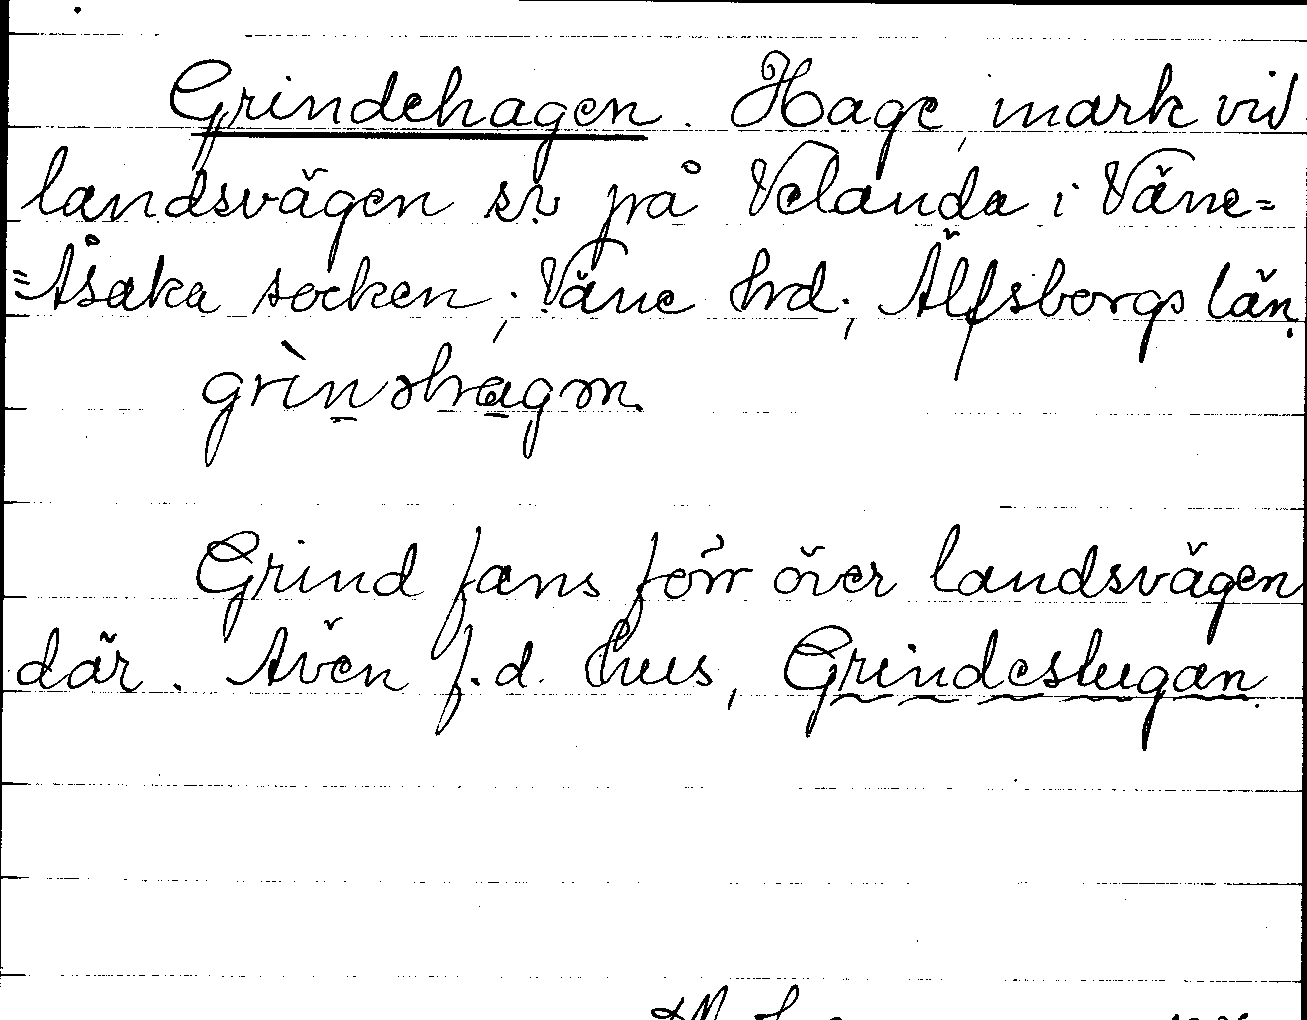 Grindehagen. Hage, mark vid
landsvägen sv på Velanda i Väne=
=Åsaka socken, Väne hrd; Älfsborgs län.
grìnəhagən.
Grind fans förr över landsvägen
där. Även f.d. hus, Grindestugan.